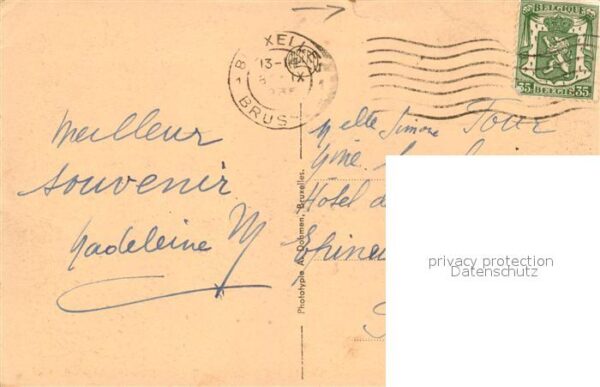 BELGIQUE
35 BELGIE 35
BRUS
Meilleur
souvenir
Madeleine M
Melle Simone Tour
Hôtel
Phototypie A. Dohmen, Bruxelles.
privacy protection
Datenschutz